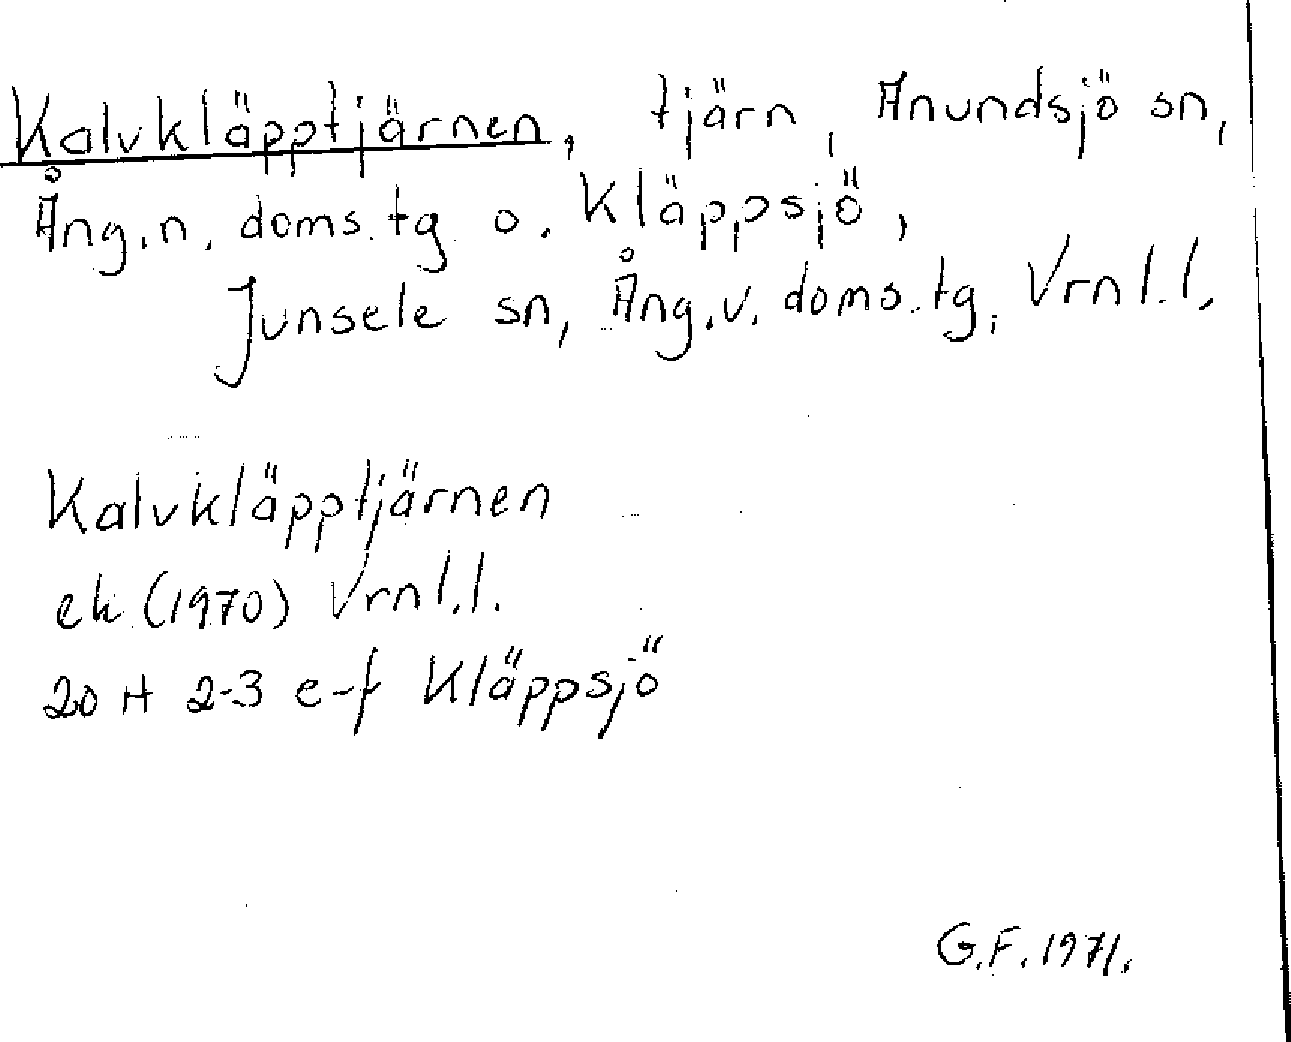 Kalvkläpptjärnen, tjärn, Anundsjö sn,
Ång.n. doms.tg o. Kläppsjö,
Junsele sn, Ång.v. doms.tg, Vrnl.l.
Kalvkläpptjärnen
ek (1970) Vrnl.l.
20 H 2-3 e-f Kläppsjö
G.F. 1971.